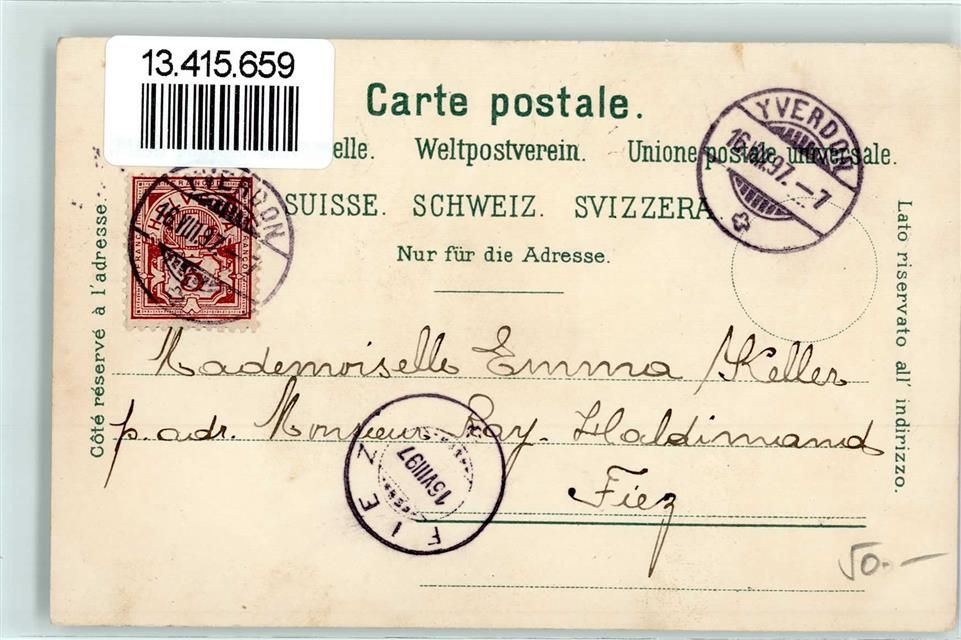 13.415.659
Carte postale.
elle. Weltpostverein. Unione postale universale.
SUISSE. SCHWEIZ. SVIZZERA.
Nur für die Adresse.
Côté réservé à l'adresse.
Lato riservato all' indirizzo.
YVERDON
16.VIII.97.-7
YVERDON
16.VIII.97.
Mademoiselle Emma Keller
p. adr. Monsieur Ray-Haldimand
Fiez
FIEZ
16VIII97
50.-